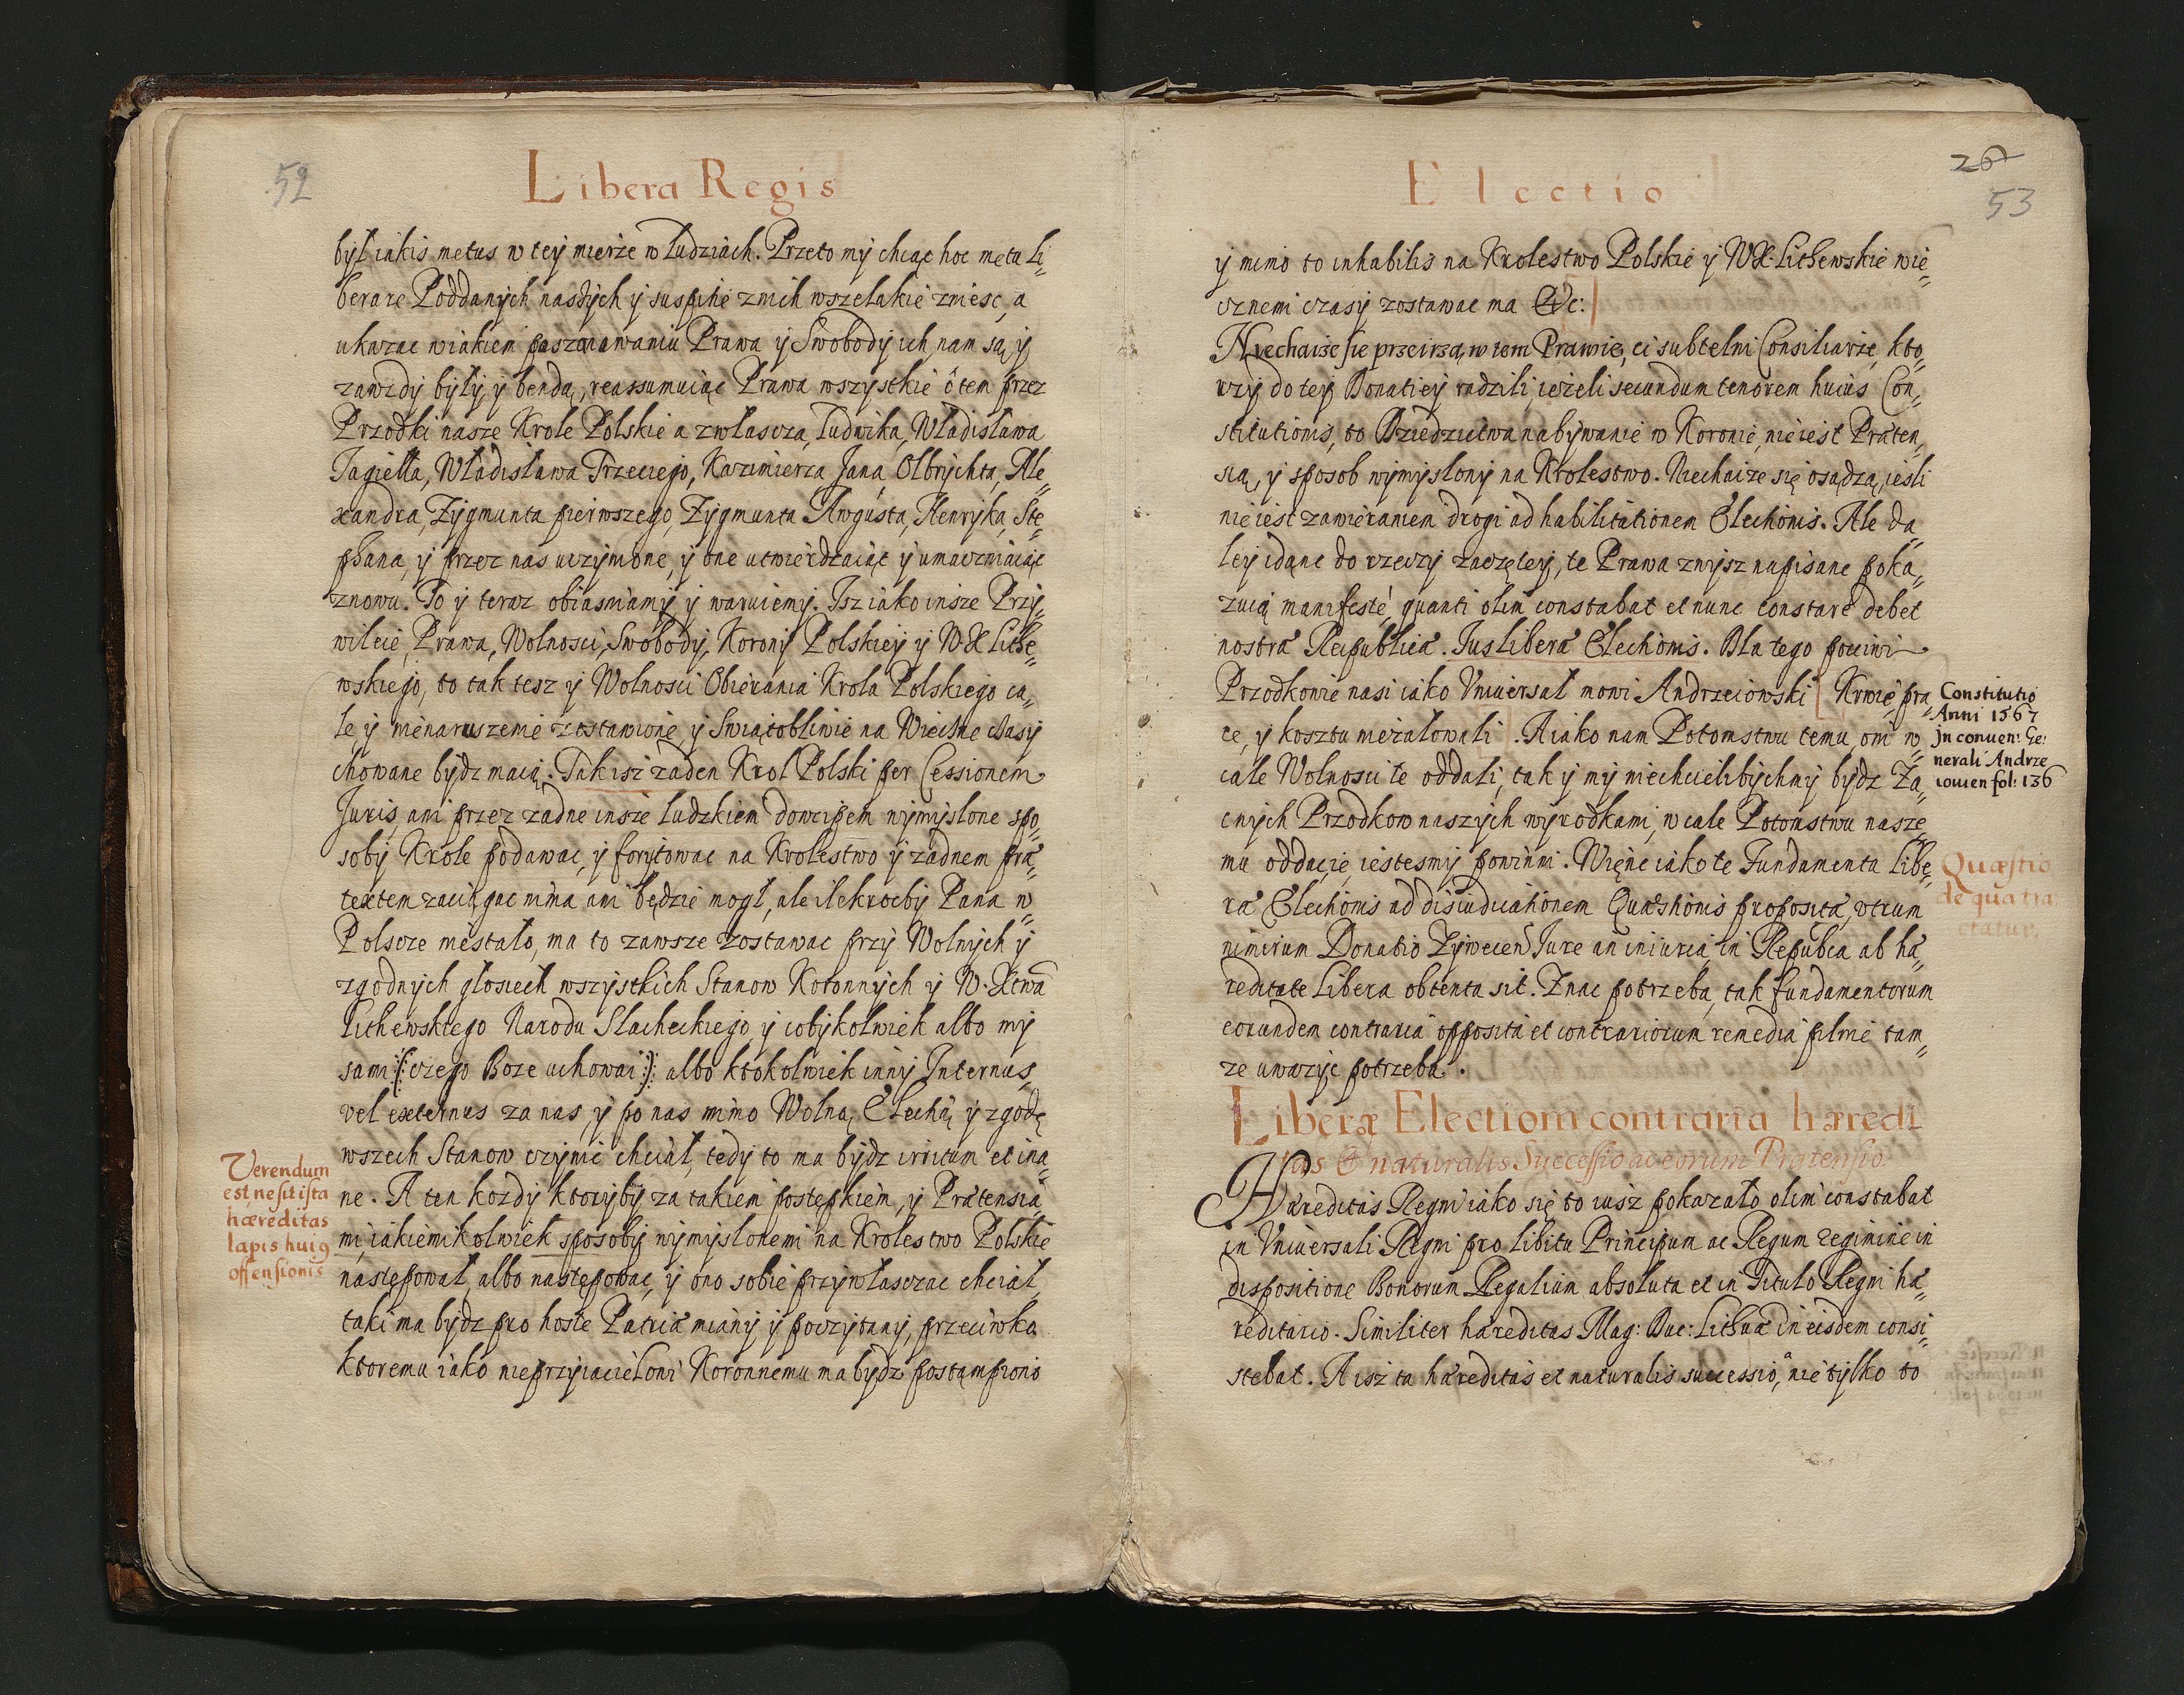 52
Libera Regis
był iakis metus w tey mierze w ludziach. Przeto my chcąc hoc metu li„
berare Poddanych naszych y suspitie z nich wszelakie zniesc, a
ukazac w iakiem poszanowaniu Prawa y Swobody ich nam są, y
zawzdy były, y bendą, reassumuiąc Prawa wszystkie o tem przez
Przodki nasze Krole Polskie a zwłascza, Ludwika, Władisława
Jagiełła, Władisława Trzeciego, Kazimierza Jana, Olbrychta, Ale„
xandra, Zygmunta pierwszego, Zygmunta Awgusta, Henryka, Ste„
phana, y przez nas uczynione, y one utwierdzaiąc y umacniaiąc
znowu. To y teraz obiasniamy y waruiemy. Isz iako insze Przy„
wileie, Prawa, Wolnosci, Swobody, Korony Polskiey y W. X Lithe„
wskiego, to tak tesz y Wolnosci Obierania Krola Polskiego ca„
le y nienaruszenie zostawione y Swiątobliwie na Wieczne czasy
chowane bydz maią. Tak isz zaden Krol Polski per Cessionem
Juris, ani przez zadne insze ludzkiem dowcipem wymyslone spo„
soby Krole podawac, y forytowac na Krolestwo y zadnem præ„
textem zaciągac nima ani będzie mogł, ale ilekrocby Pana w„
Polscze niestało, ma to zawsze zostawac przy Wolnych y
zgodnych głosiech wszystkich Stanow Koronnych y W. Xtwa
Lithewskiego Narodu Slacheckiego y cobykolwiek albo my
sami (: czego Boze uchowai :) albo ktokolwiek inny Internus,
vel externus za nas, y po nas mimo Wolną, Elechią y zgodę
wszech Stanow czynic chciał, tedy to ma bydz irritum et ina„
ne. A ten kozdy ktoryby za takiem postępkiem, y Prætensia„
mi, iakiemikolwiek sposoby wymyslonemi na Krolestwo Polskie
następował, albo następowac, y ono sobie przywłasczac chciał,
taki ma bydz pro hoste Patriæ miany y poczytany, przeciwko
ktoremu iako nieprzyiacielowi Koronnemu ma bydz postąmpiono
Verendum
est, ne sit ista
hæreditas
lapis hui9
offensionis
Electio
26
53
y mimo to inhabilis na Krolestwo Polskie y W. X. Lithewskie wie„
cznemi czasy zostawac ma &c:
Niechaize sie przeirzą w tem Prawie, ci subtelni Consiliarze, kto„
rzy do tey Donatiey radzili, iezeli secundum tenorem huius Con„
stitutionis, to Dziedzictwa nabywanie w Koronie, nie iest Præten„
sią, y sposob wymyslony na Krolestwo. Niechaize się osądzą, iesli
nie iest zawieraniem drogi ad habilitationem Elechionis. Ale da„
ley idąnc do rzeczy zaczętey, te Prawa zwysz napisane poka„
zuią manifestè, quanti olim constabat et nunc constare debet
nostra Reipublicæ. Jus liberæ Elechionis. Dla tego pocciwi
Przodkowie nasi iako Vniuersał mowi Andrzeiowski Krwie, pra„
ce, y kosztu nieżałowali. A iako nam Potomstwu temu, oni w„
cale Wolnosci te oddali, tak y my niechcielibychmy bydz Za„
cnych Przodkow naszych wyrodkami, w cale Potomstwu nasze„
mu oddacie iestesmy powinni. Więnc iako te Fundamenta libe„
ræ Elechionis ad disiudicationem Quæstionis propositæ, vtrum
nimirum Donatio Zywecen Jure an iniuria, in Repubca ab hæ„
reditate libera obtenta sit. Znac potrzeba, tak fundamentorum
eorundem contraria opposita et contrariorum remedia pilnie tam„
ze uwazyc potrzeba.
Constitutio
Anni 1567
in conuen: Ge:
nerali Andrze
iouien fol: 136
Quæstio
de qua tra
ctatur.
Liberæ Electioni contraria hæredi
tas & naturalis Successio ac eorum Prætensio
Hæreditas Regni iako się to iusz pokazało olim constabat
in Vniuersali Regni pro libitu Principum ac Regum regimine in
dispositione Bonorum Regalium absoluta et in Titulo Regni hæ„
reditario. Similiter hæreditas Mag: Duc: Lithuæ in eisdem consi„
stebat. A isz ta hæreditas et naturalis successio, nie tylko to